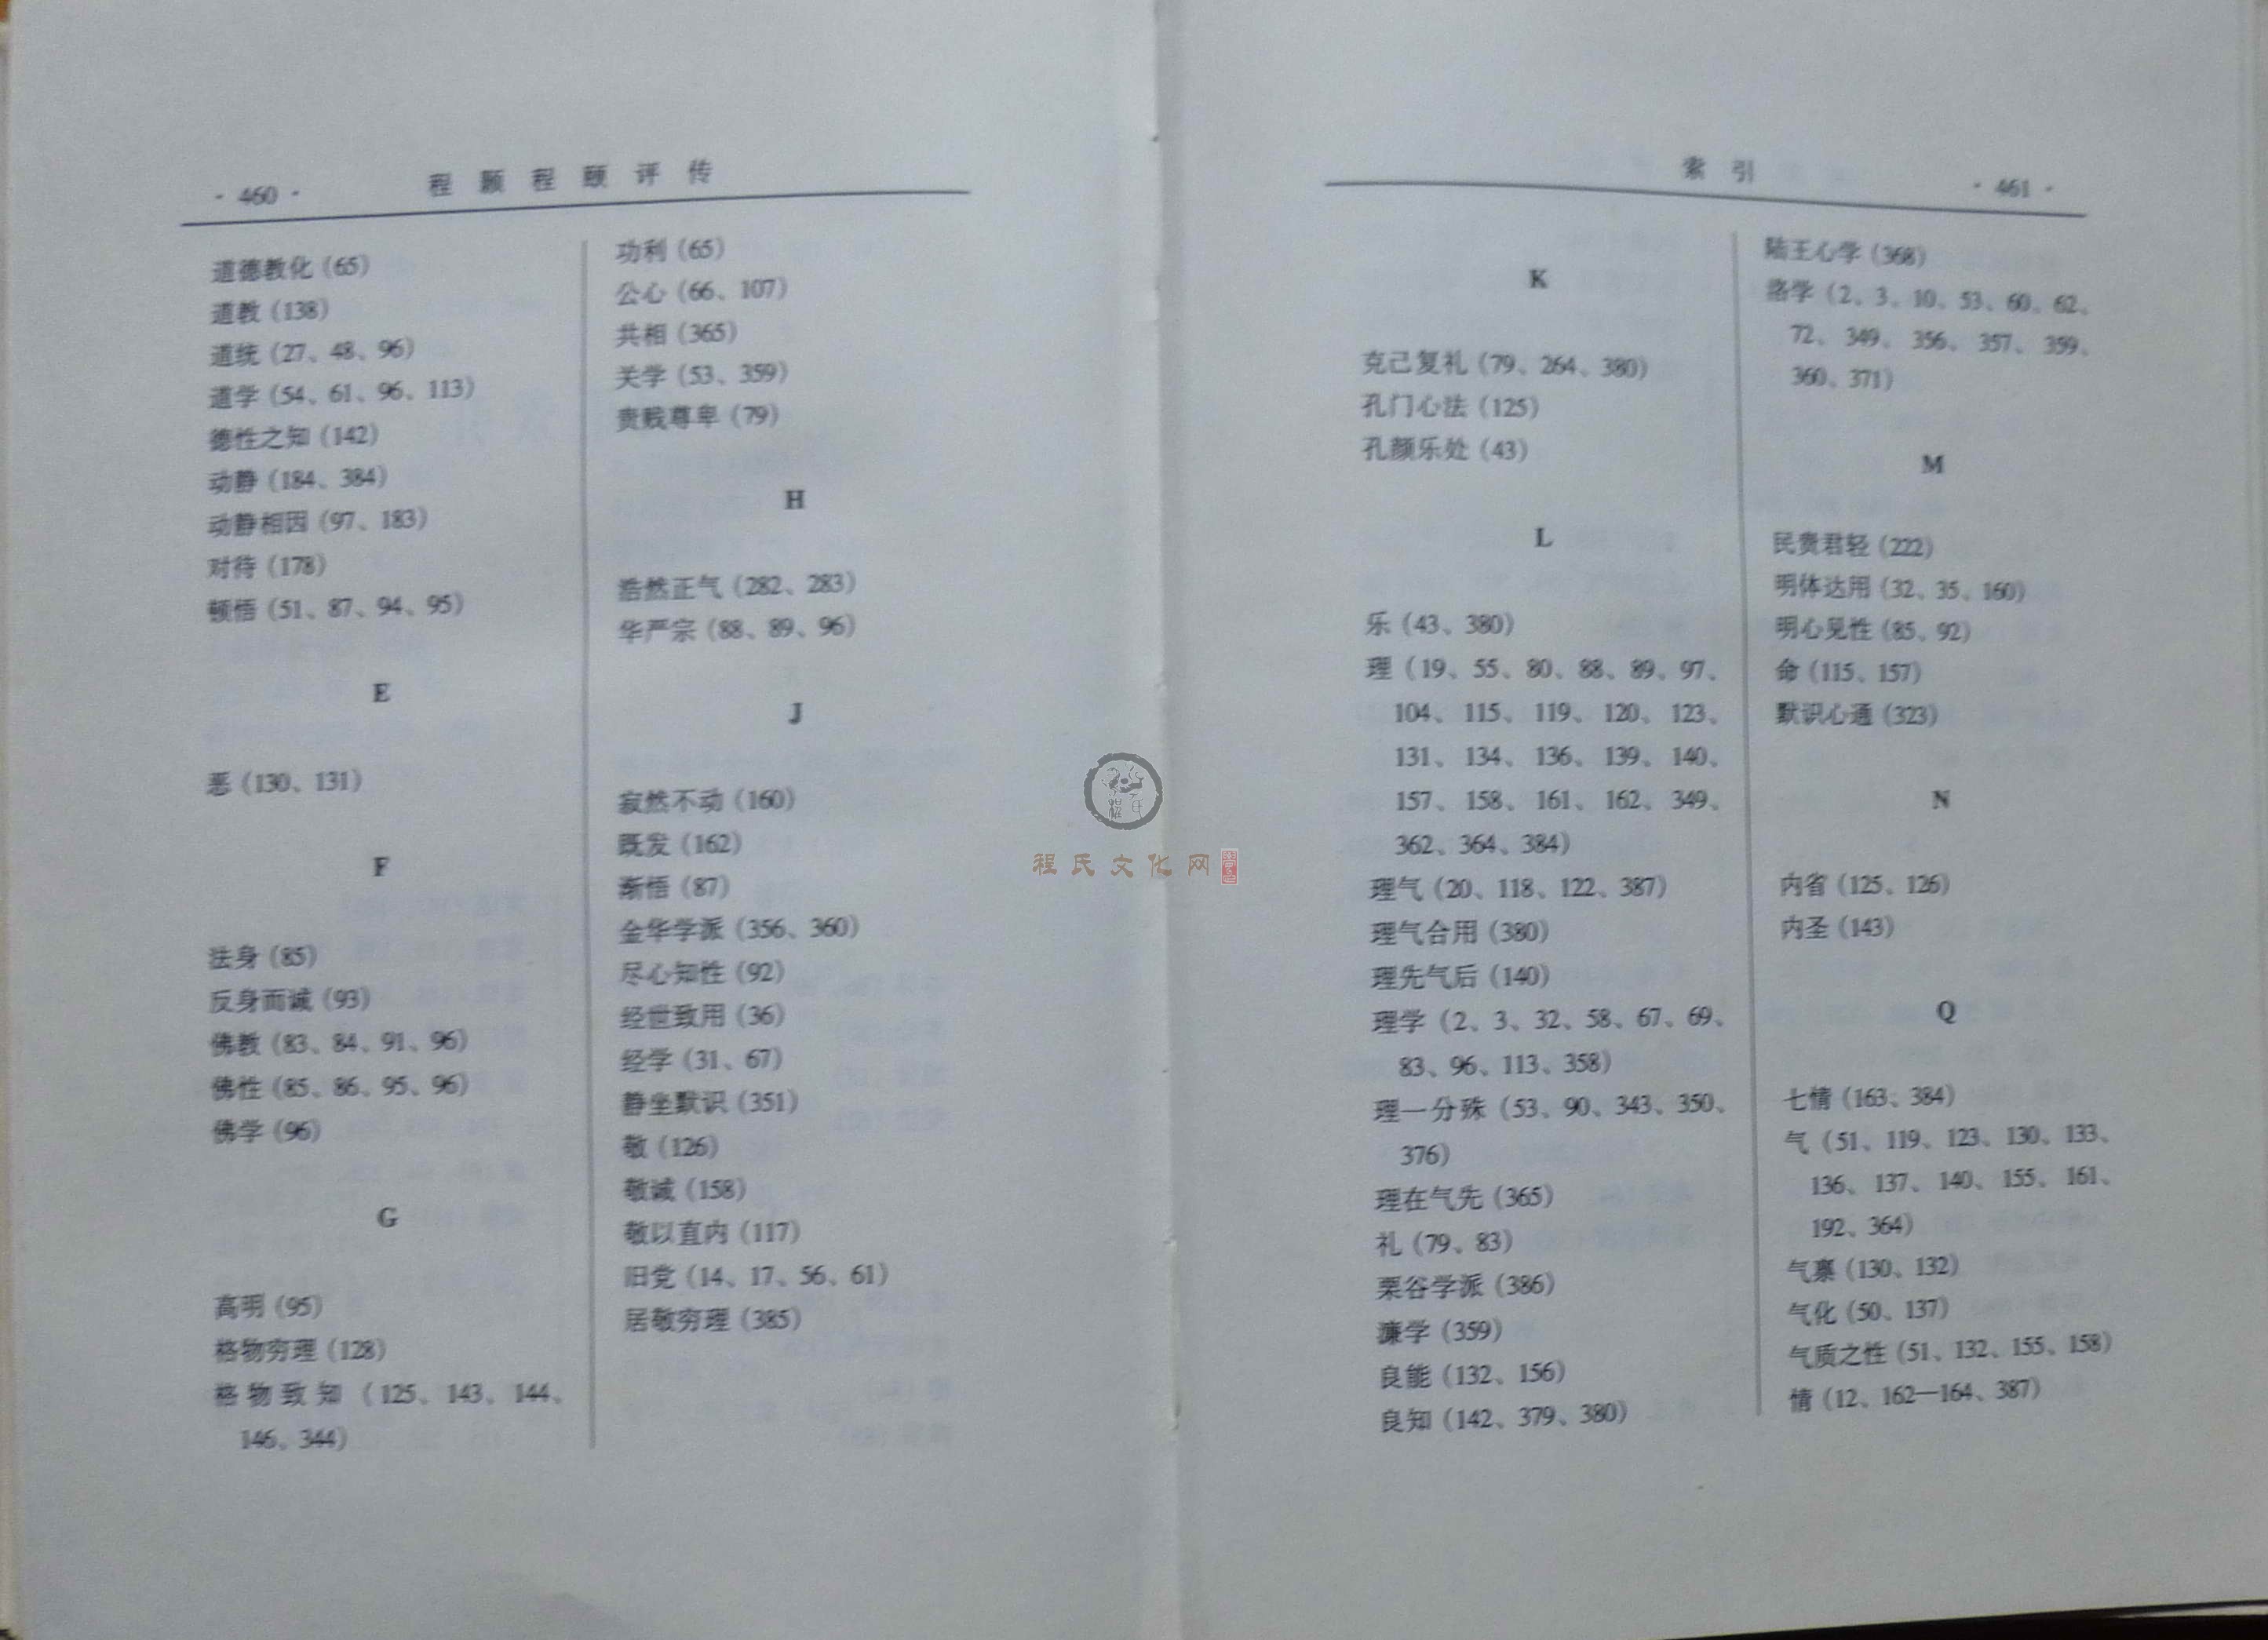 · 460 ·
程颢程颐评传
道德教化（65）
道教（138）
道统（27、48、96）
道学（54、61、96、113）
德性之知（142）
动静（184、384）
动静相因（97、183）
对待（178）
顿悟（51、87、94、95）
E
恶（130、131）
F
法身（85）
反身而诚（93）
佛教（83、84、91、96）
佛性（85、86、95、96）
佛学（96）
G
高明（95）
格物穷理（128）
格物致知（125、143、144、
146、344）
功利（65）
公心（66、107）
共相（365）
关学（53、359）
贵贱尊卑（79）
H
浩然正气（282、283）
华严宗（88、89、96）
J
寂然不动（160）
既发（162）
渐悟（87）
金华学派（356、360）
尽心知性（92）
经世致用（36）
经学（31、67）
静坐默识（351）
敬（126）
敬诚（158）
敬以直内（117）
旧党（14、17、56、61）
居敬穷理（385）
程氏
程氏文化网
索引
· 461 ·
K
克己复礼（79、264、380）
孔门心法（125）
孔颜乐处（43）
L
乐（43、380）
理（19、55、80、88、89、97、
104、115、119、120、123、
131、134、136、139、140、
157、158、161、162、349、
362、364、384）
理气（20、118、122、387）
理气合用（380）
理先气后（140）
理学（2、3、32、58、67、69、
83、96、113、358）
理一分殊（53、90、343、350、
376）
理在气先（365）
礼（79、83）
栗谷学派（386）
濂学（359）
良能（132、156）
良知（142、379、380）
陆王心学（368）
洛学（2、3、10、53、60、62、
72、349、356、357、359、
360、371）
M
民贵君轻（222）
明体达用（32、35、160）
明心见性（85、92）
命（115、157）
默识心通（323）
N
内省（125、126）
内圣（143）
Q
七情（163、384）
气（51、119、123、130、133、
136、137、140、155、161、
192、364）
气禀（130、132）
气化（50、137）
气质之性（51、132、155、158）
情（12、162—164、387）